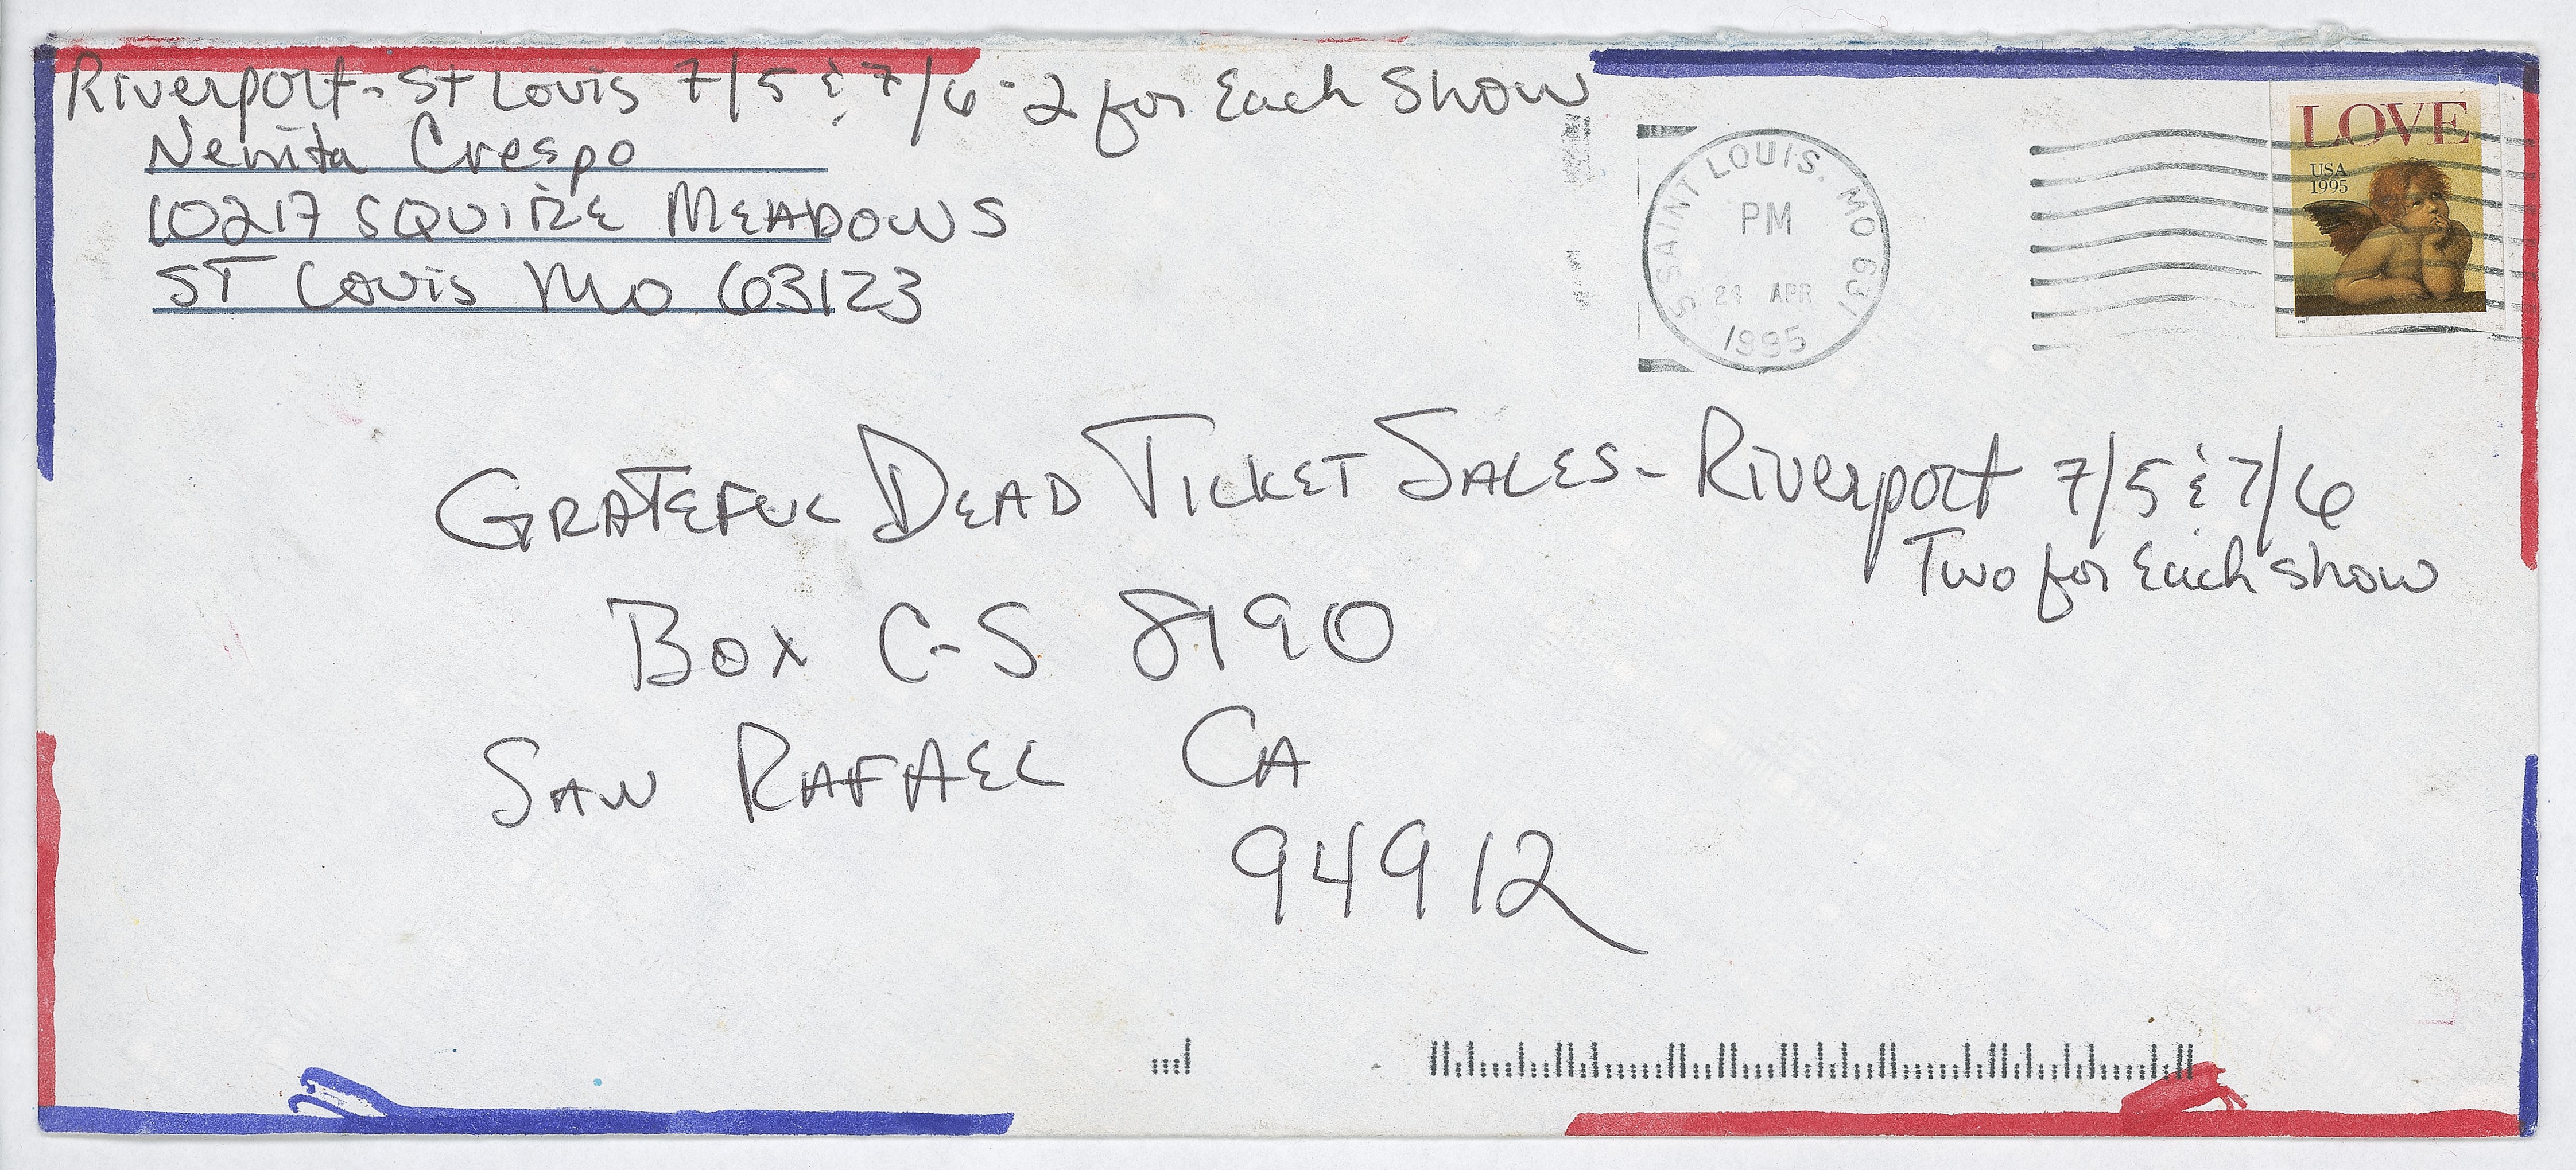 Riverport - St Louis 7/5 & 7/6 - 2 for Each Show
Nenita Crespo
10217 SQUIRE MEADOWS
ST Louis Mo 63123
SAINT LOUIS. MO 631
PM
APR
1995
LOVE
USA
1995
GRATEFUL DEAD TICKET SALES - Riverport 7/5 & 7/6
Two for Each show
BOX C-S 8190
SAN RAFAEL CA
94912